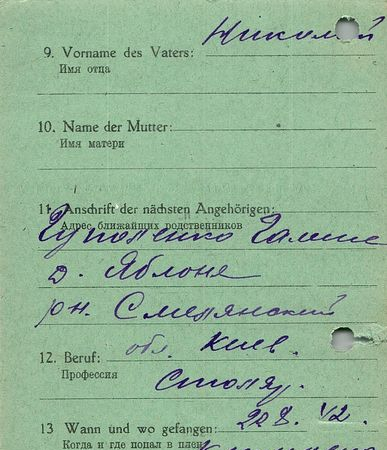 Николай
9. Vorname des Vaters:
Имя отца
10. Name der Mutter:
Имя матери
11. Anschrift der nächsten Angehörigen:
Адрес ближайших родственников
Галине
д. Яблоне
рн. Смелянский
обл. Киев.
12. Beruf:
Профессия
Столяр.
13 Wann und wo gefangen: 22 8. 42.
Когда и где попал в плен